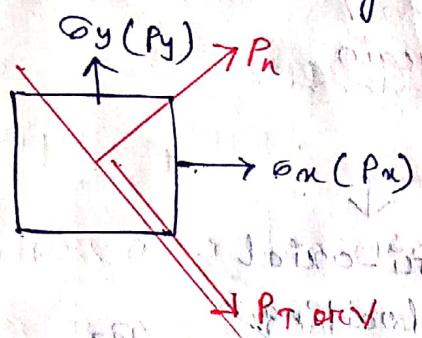 σy (Py)
Pn
σx (Px)
PT or V